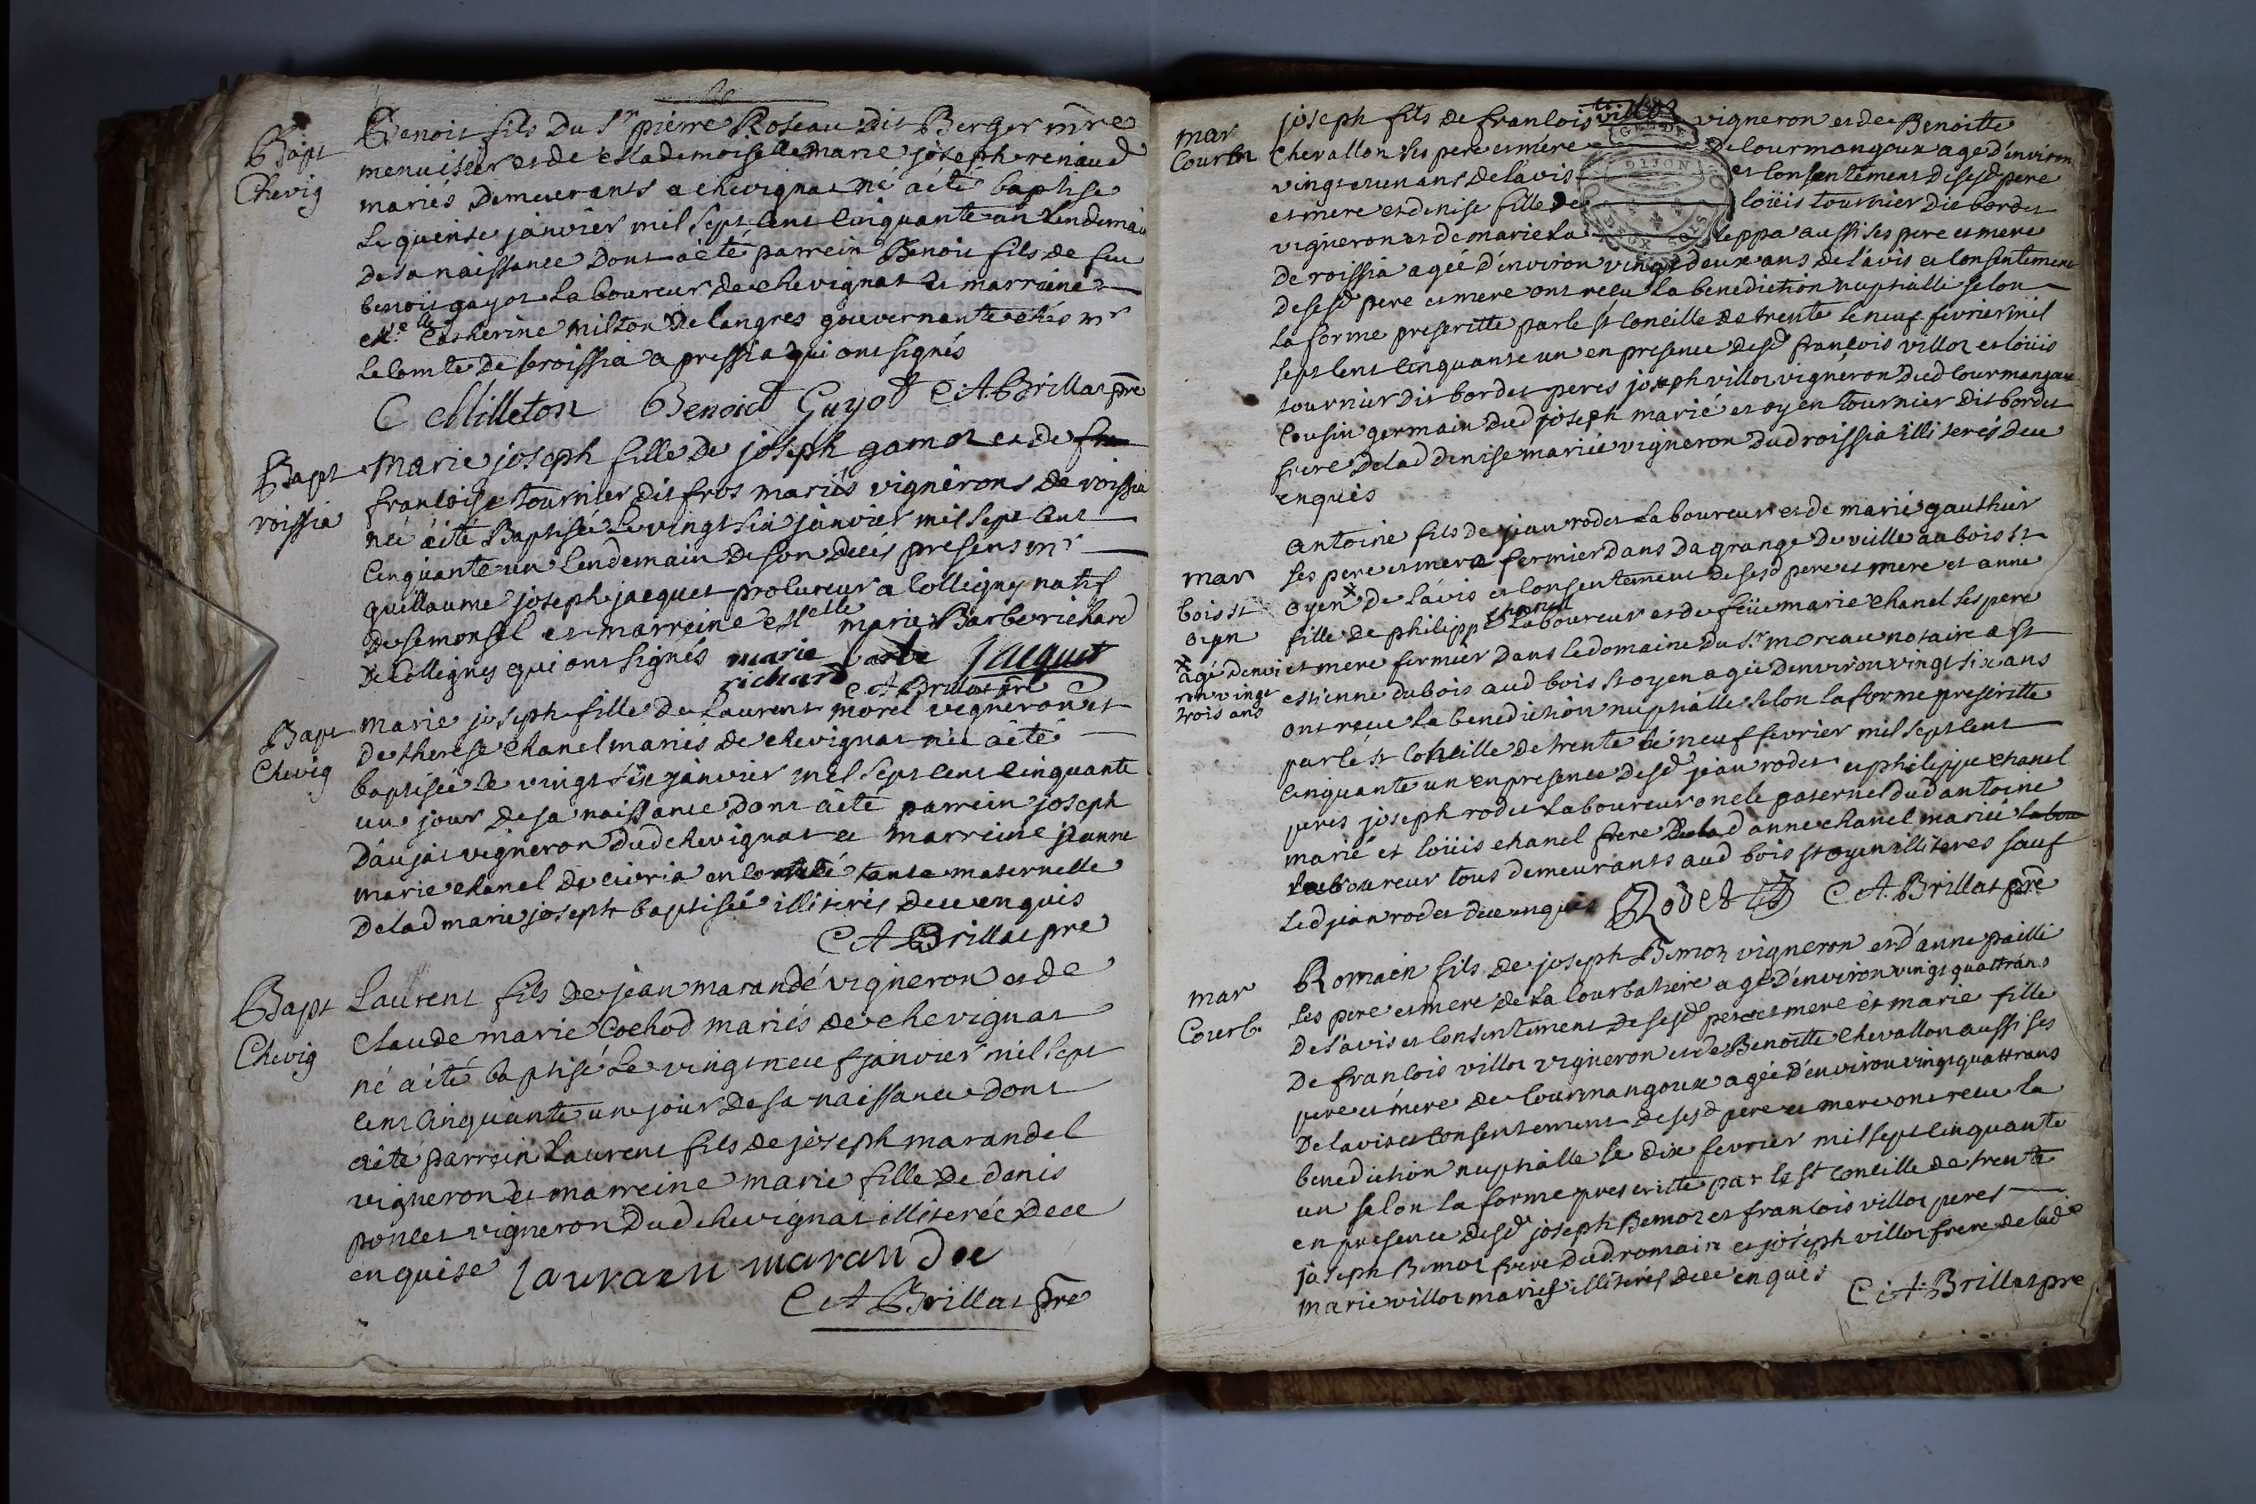 Bapt
Chevig
Benoit fils du Sr pierre Roseau dit Berger mre
menuisier et de et lademoiselle marie joseph renaud
mariés demeurants a chevignat né a été baptisé
le quinse janvier mil sept cent cinquante un lendemain
de sa naissance dont a été parrein Benoit fils de feu
benoit gayot laboureur de chevignat et marreine
Melle Catherine Milton de langres gouvernante chés mr
le comte de broissia a pressia qui ont signés
C Milleton Benoict Guyot C A Brillat pre
Bapt
roissia
Marie joseph fille de joseph gamot et de
francoise tournier dit fros mariés vignerons de roissia
née a été Baptisée le vingt six janvier mil sept cent
cinquante un lendemain de son decés presens mr
guillaume joseph jacquet procureur a Colligny natif
de Semonsel et marreine Melle marie Barbe richard
de Colligny qui ont signés marie barbe jacquet
richard C A Brillat pre
Bapt
Chevig
marie joseph fille de Laurent morel vigneron et
de therese chanel mariés de chevignat née a été
baptisée le vingt six janvier mil sept cent cinquante
un jour de sa naissance dont a été parrein joseph
daujat vigneron dud chevignat et marreine jeanne
marie chanel de civria en comté tante maternelle
de lad marie joseph baptisée illiterés de ce enquis
C A Brillat pre
Bapt
Chevig
Laurent fils de jean marandé vigneron et de
Claude marie Cochod mariés de chevignat
né a été baptisé le vingt neuf janvier mil sept
cent cinquante un jour de sa naissance dont
a été parrein Laurent fils de joseph marandel
vigneron et marreine marie fille de denis
poncet vigneron dud chevignat illiterée de ce
enquise Lauraen marandee
C A Brillat pre
mar
Courm
joseph fils de francois villot vigneron et de Benoitte
Chevallon ses pere et mere de Courmangoux agé d'environ
vingt et un ans de l'avis et consentement de sesd pere
et mere et denise fille de loüis tournier dit bordet
vigneron et de marie la leppa aussi ses pere et mere
de roissia agée d'environ vingt deux ans de l'avis et consentement
de sesd pere et mere ont recu la benediction nuptialle selon
la forme prescritte par le st Conceille de trente le neuf fevrier mil
sept cent cinquante un en presence desd francois villot et loüis
tournier dit bordet peres joseph villot vigneron dud Courmangoux
cousin germain dud joseph marié et oyen tournier dit bordet
frere de lad denise mariée vigneron dud roissia illiterés de ce
enquis
mar
bois st
oyen
x agé d'envi
ron vingt
trois ans
Antoine fils de jean rodet laboureur et de marie gauthier
ses pere et mere fermier dans la grange de veille au bois st
oyen x de l'avis et consentement de sesd pere et mere et anne
fille de philippe chanel laboureur et de feüe marie chanel ses pere
et mere fermier dans le domaine du Sr moreau notaire a st
estienne dubois aud bois st oyen agée d'environ vingt six ans
ont recue la benediction nuptialle selon la forme prescritte
par le st Conceille de trente le neuf fevrier mil sept cent
cinquante un en presence desd jean rodet et philippe chanel
peres joseph rodet laboureur oncle paternel dud antoine
marié et loüis chanel frere de lad anne chanel mariée
laboureur tous demeurants aud bois st oyen illiteres sauf
led jean rodet de ce enquis Rodet C A Brillat pre
mar
Courb.
Romain fils de joseph Bemot vigneron et d'anne pailli
ses pere et mere de la Courbatiere agé d'environ vingt quattr ans
de l'avis et consentement de sesd pere et mere et marie fille
de francois villot vigneron et de Benoitte Chevallon aussi ses
pere et mere de Courmangoux agée d'environ vingt quattr ans
de l'avis et consentement de sesd pere et mere ont recue la
benediction nuptialle le dix fevrier mil sept cinquante
un selon la forme prescritte par le st conceille de trente
en presence desd joseph Bemot et francois villot peres
joseph Bemot frere dud romain et joseph villot frere de lade
marie villot mariés illiterés de ce enquis C A Brillat pre